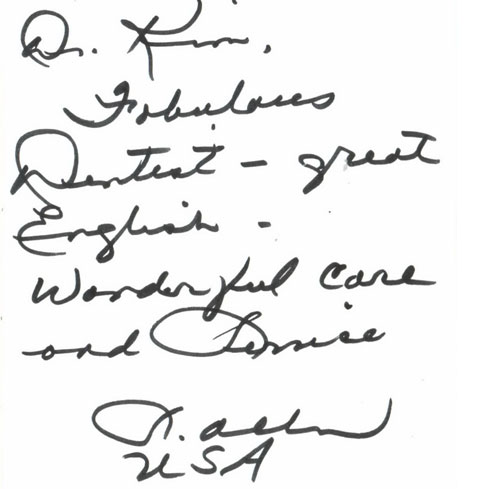 Dr. Kim,
Fabulous
Dentist - great
English -
Wonderful care
and Service
USA